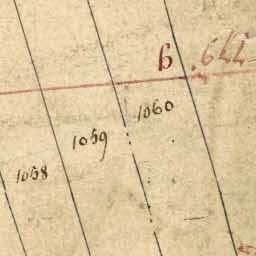 6 .644
1060
1059
1058